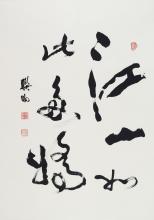 江山如
此多嬌